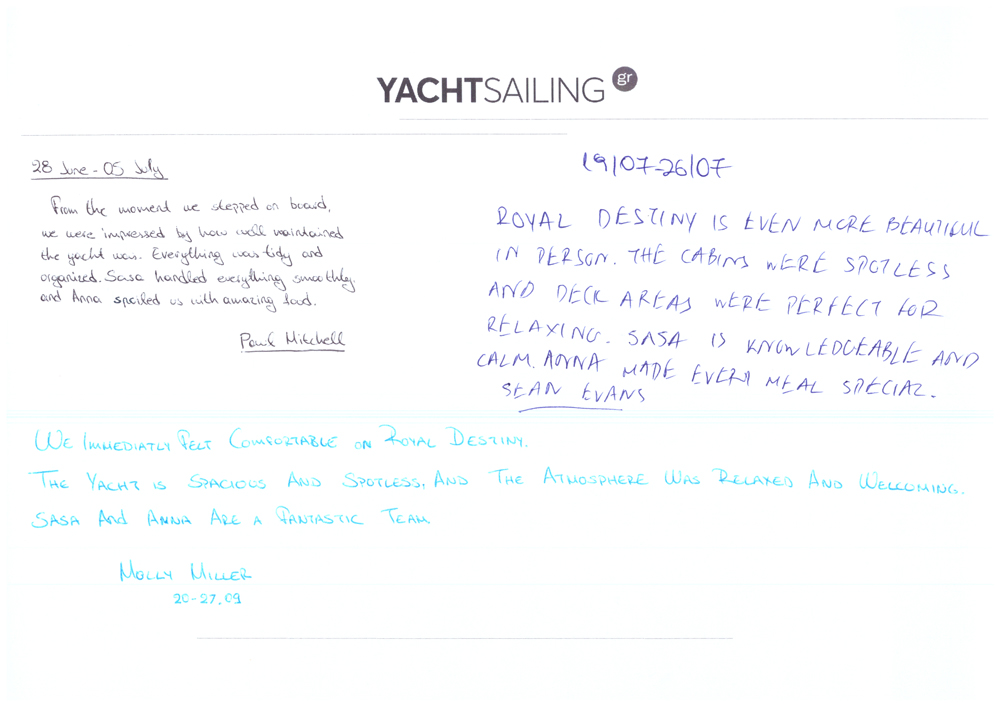 YACHTSAILING gr
28 June - 05 July
From the moment we stepped on board,
we were impressed by how well maintained
the yacht was. Everything was tidy and
organized. Sasa handled everything smoothly
and Anna spoiled us with amazing food.
Paul Mitchell
19/07-26/07
ROYAL DESTINY IS EVEN MORE BEAUTIFUL
IN PERSON. THE CABINS WERE SPOTLESS
AND DECK AREAS WERE PERFECT FOR
RELAXING. SASA IS KNOWLEDGEABLE AND
CALM. ANNA MADE EVERY MEAL SPECIAL.
SEAN EVANS
WE IMMEDIATLY FELT COMFORTABLE ON ROYAL DESTINY.
THE YACHT IS SPACIOUS AND SPOTLESS, AND THE ATMOSPHERE WAS RELAXED AND WELCOMING.
SASA AND ANNA ARE A FANTASTIC TEAM
MOLLY MILLER
20-27.09